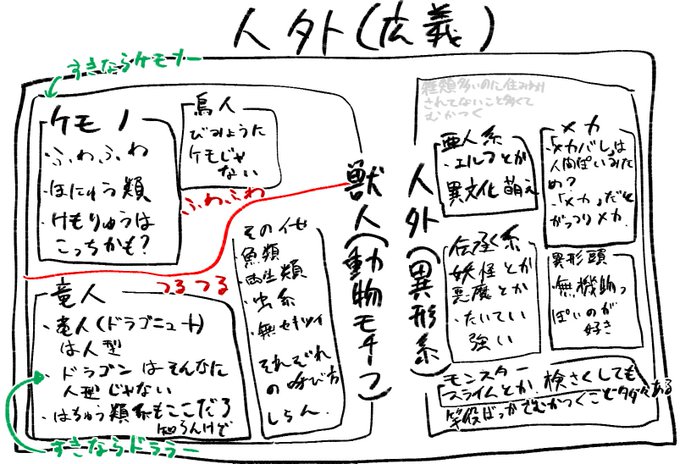 人外(広義)
すきならケモナー
ケモノ
・ふわふわ
・ほにゅう類
・けもりゅうは
こっちかも?
鳥人
びみょうに
ケモじゃ
ない
ふわふわ
つるつる
竜人
・竜人(ドラゴニュート)
は人型
・ドラゴンはそんなに
人型じゃない
・はちゅう類系もここだろ
知らんけど
すきならドラナー
その他
・魚類
・両生類
・虫系
・無セキツイ
それぞれ
の呼び方
しらん.
獣人(動物モチーフ)
人外(異形系)
種類多いのに住み分け
されてないこと多くて
むかつく
亜人系
・エルフとか
異文化萌え
メカ
・「メカバレ」は
人間ぽいうちだ
め?
・「メカ」だと
がっつりメカ.
伝承系
妖怪とか
悪魔とか
・たいてい
強い
異形頭
・無機物っ
ぽいのが
好き
モンスター
スライムとか、検さくしても
竿役ばっかでむかつくこと多々ある